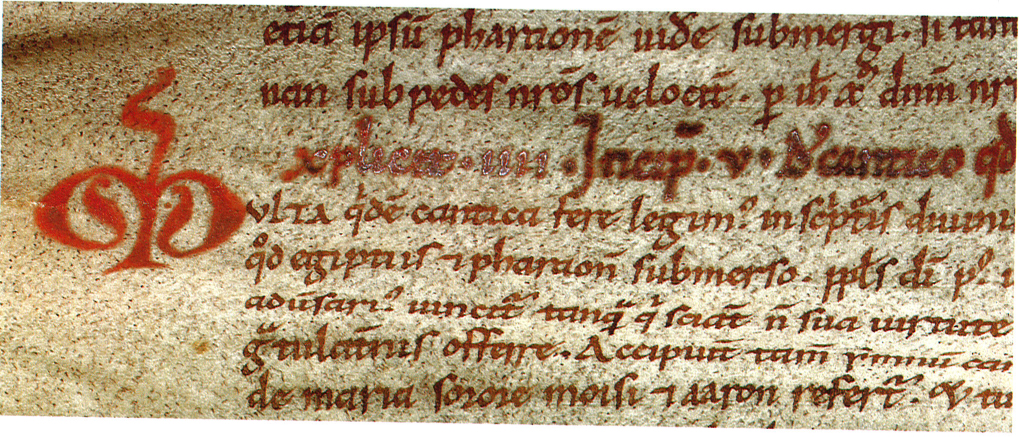 etiā ipsū pharaonē uidē submergi. si tam
nan sub pedes nrōs uelocit̄. p ih̄ xp̄ dn̄m nr
Explicit. iiii. Incip̄. v. D̄ cantico qd̄
MVLTA q̇dē cantica fere legim᷒ in sc̄ptᷓis diuini
qd̄ egiptiis ⁊ pharaon̄ submerso. ppl̄s dī p᷒
adūsari᷒ uincit̄ tanq̄ q̇ sciat̄ n̄ sua uirtute
gᷓtulat̄ius offerre. Accipiūt tam̄ ẏmnū can
de maria sorore moisi ⁊ aaron refert̄.